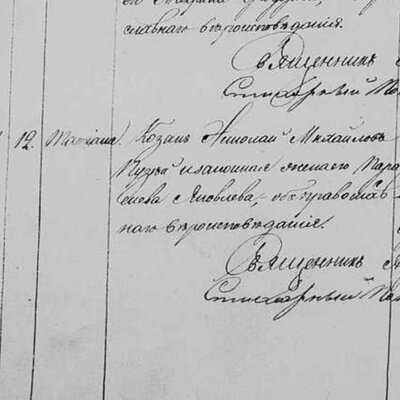 славнаго вѣроисповѣданія.
Священникъ
Стихарный По
12. Татіана. Козакъ Николай Михайловъ
Куцый и законная жена его Пара
скева Яковлева, оба православ
наго вѣроисповѣданія.
Священникъ
Стихарный По